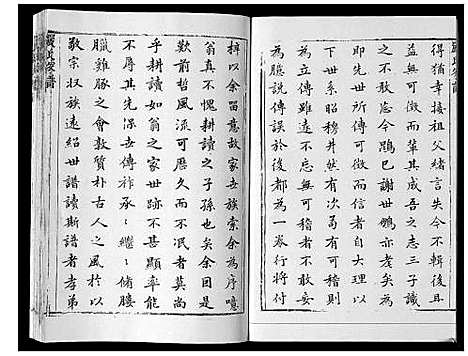 得猶幸接祖父緒言失今不輯後且
益無可徵而葉其成吾之志三子識
之不敢忘迄今鵬已謝世鵬亦孝矣
即先世所傳可徵而信者自大理以
下世系昭穆井然有次勗有可稽則
為立傳雖遠不忘無可稽者不敢妄
為臆說傳誤於後都為一卷行將付
梓以余留意故家世族索余為序噫
翁真不愧耕讀之子孫也矣余回是
歎前哲風流可歷久而不泯者莫尚
乎耕讀如翁之家世跡不顯率能
不辱其先保世傳祚繼繼脩膢
臘雞豚之會敦質朴古人之風於以
敬宗收族遠紹世譜讀斯譜者孝弟